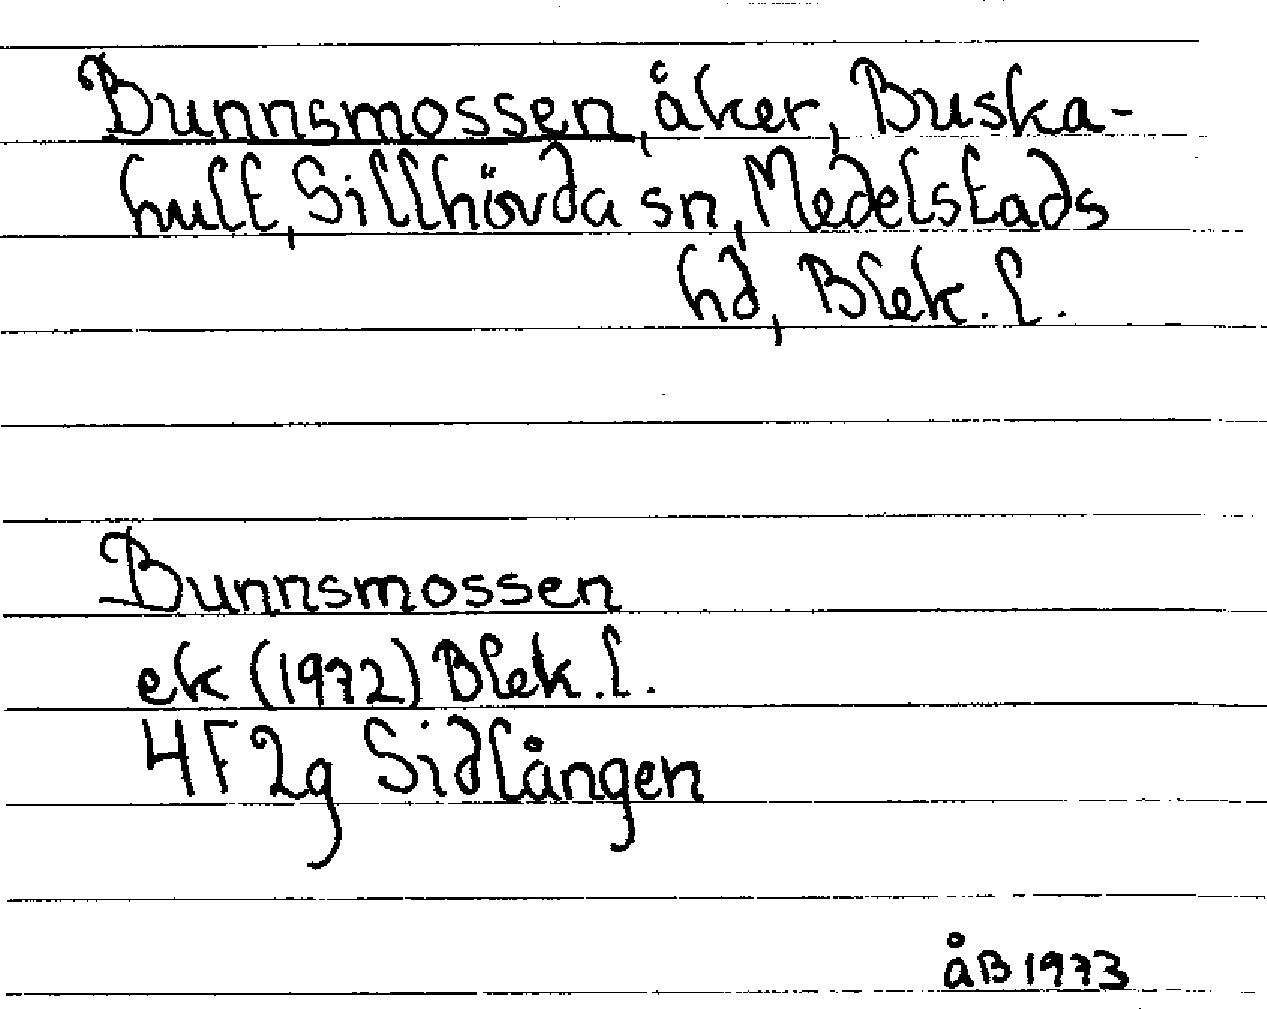 Bunnsmossen, åker, Buska-
hult, Sillhövda sn, Medelstads
hd, Blek. l.
Bunnsmossen
ek (1972) Blek. l.
4F2g Sidlången
åB 1973